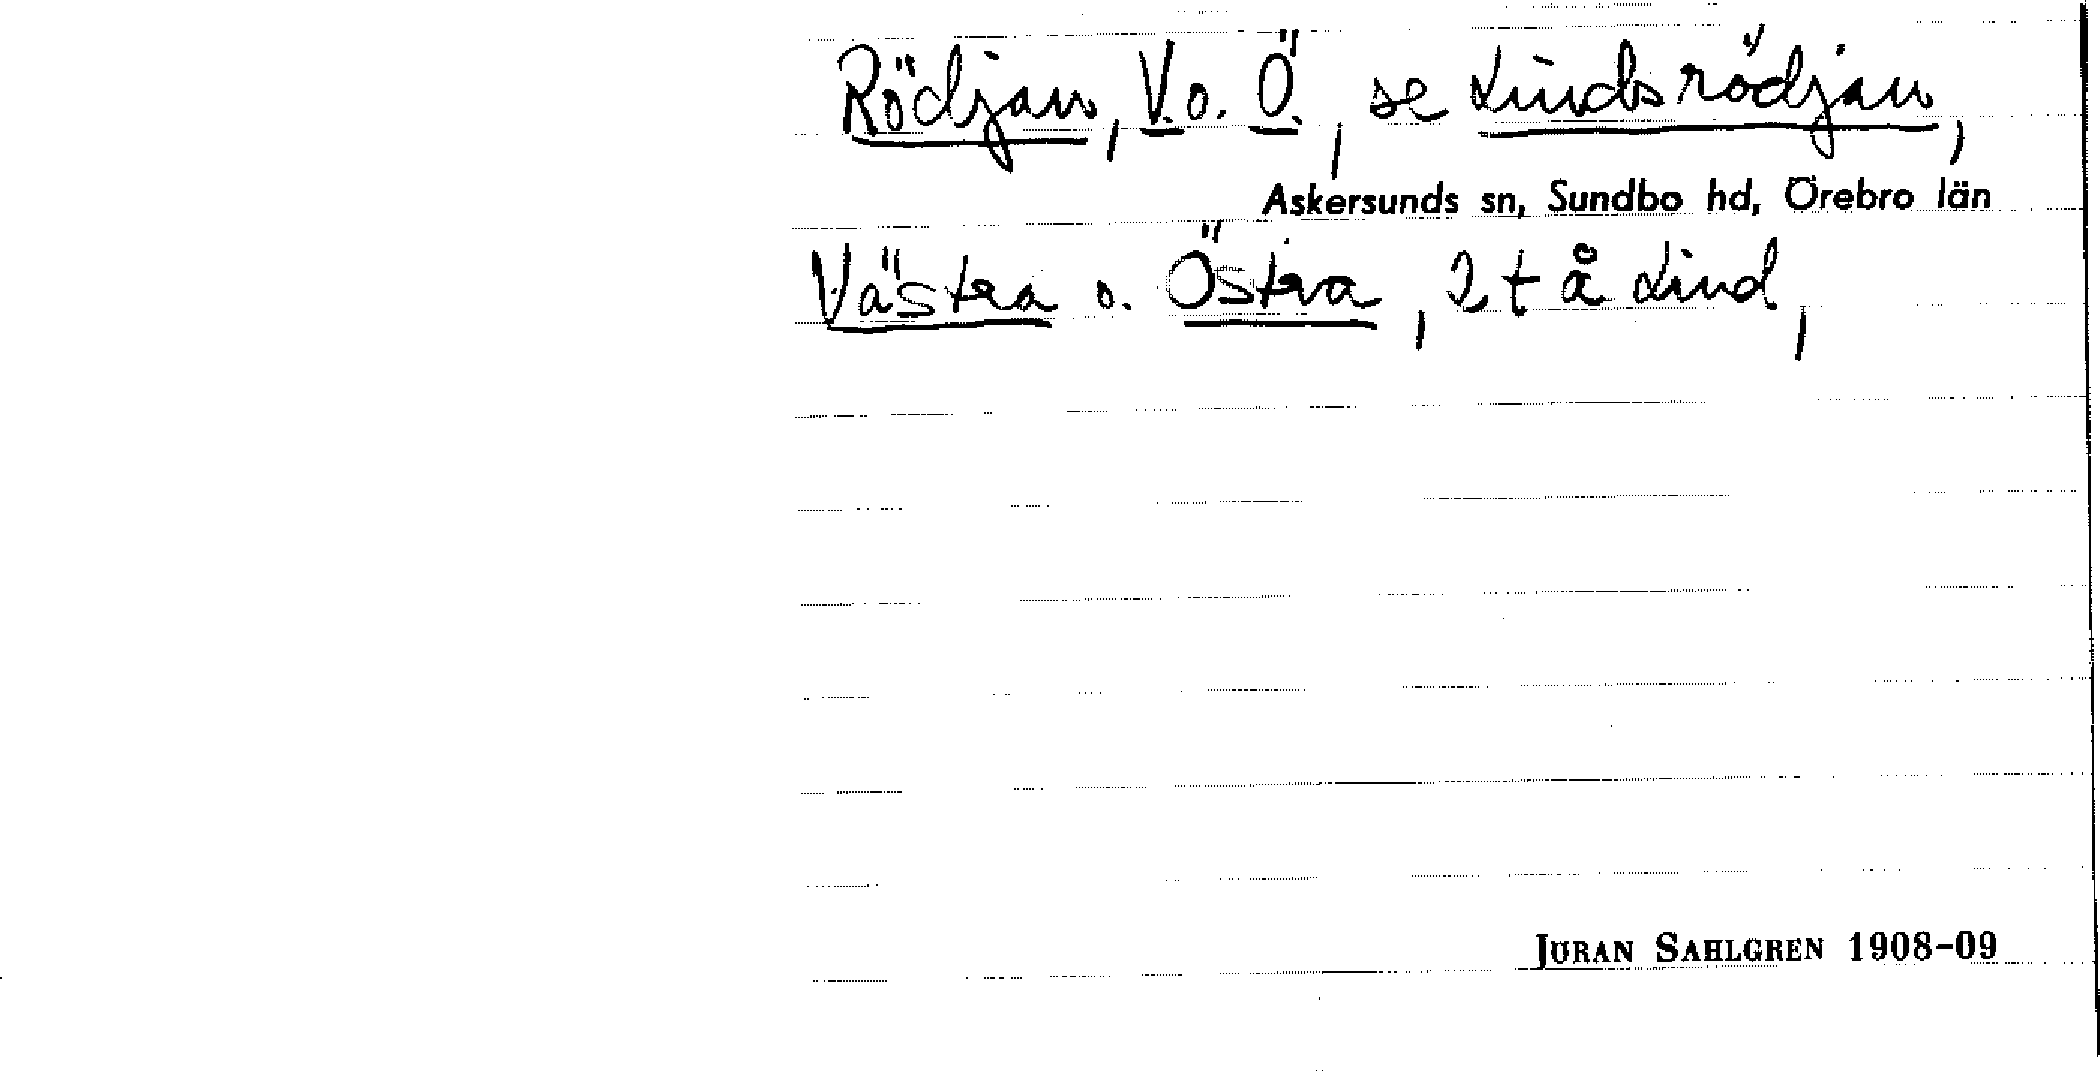 Rödjan, V. o. Ö., se Lindsrödjan,
Askersunds sn, Sundbo hd, Örebro län
Västra o. Östra, 2 t å Lind,
JÖRAN SAHLGREN 1908-09